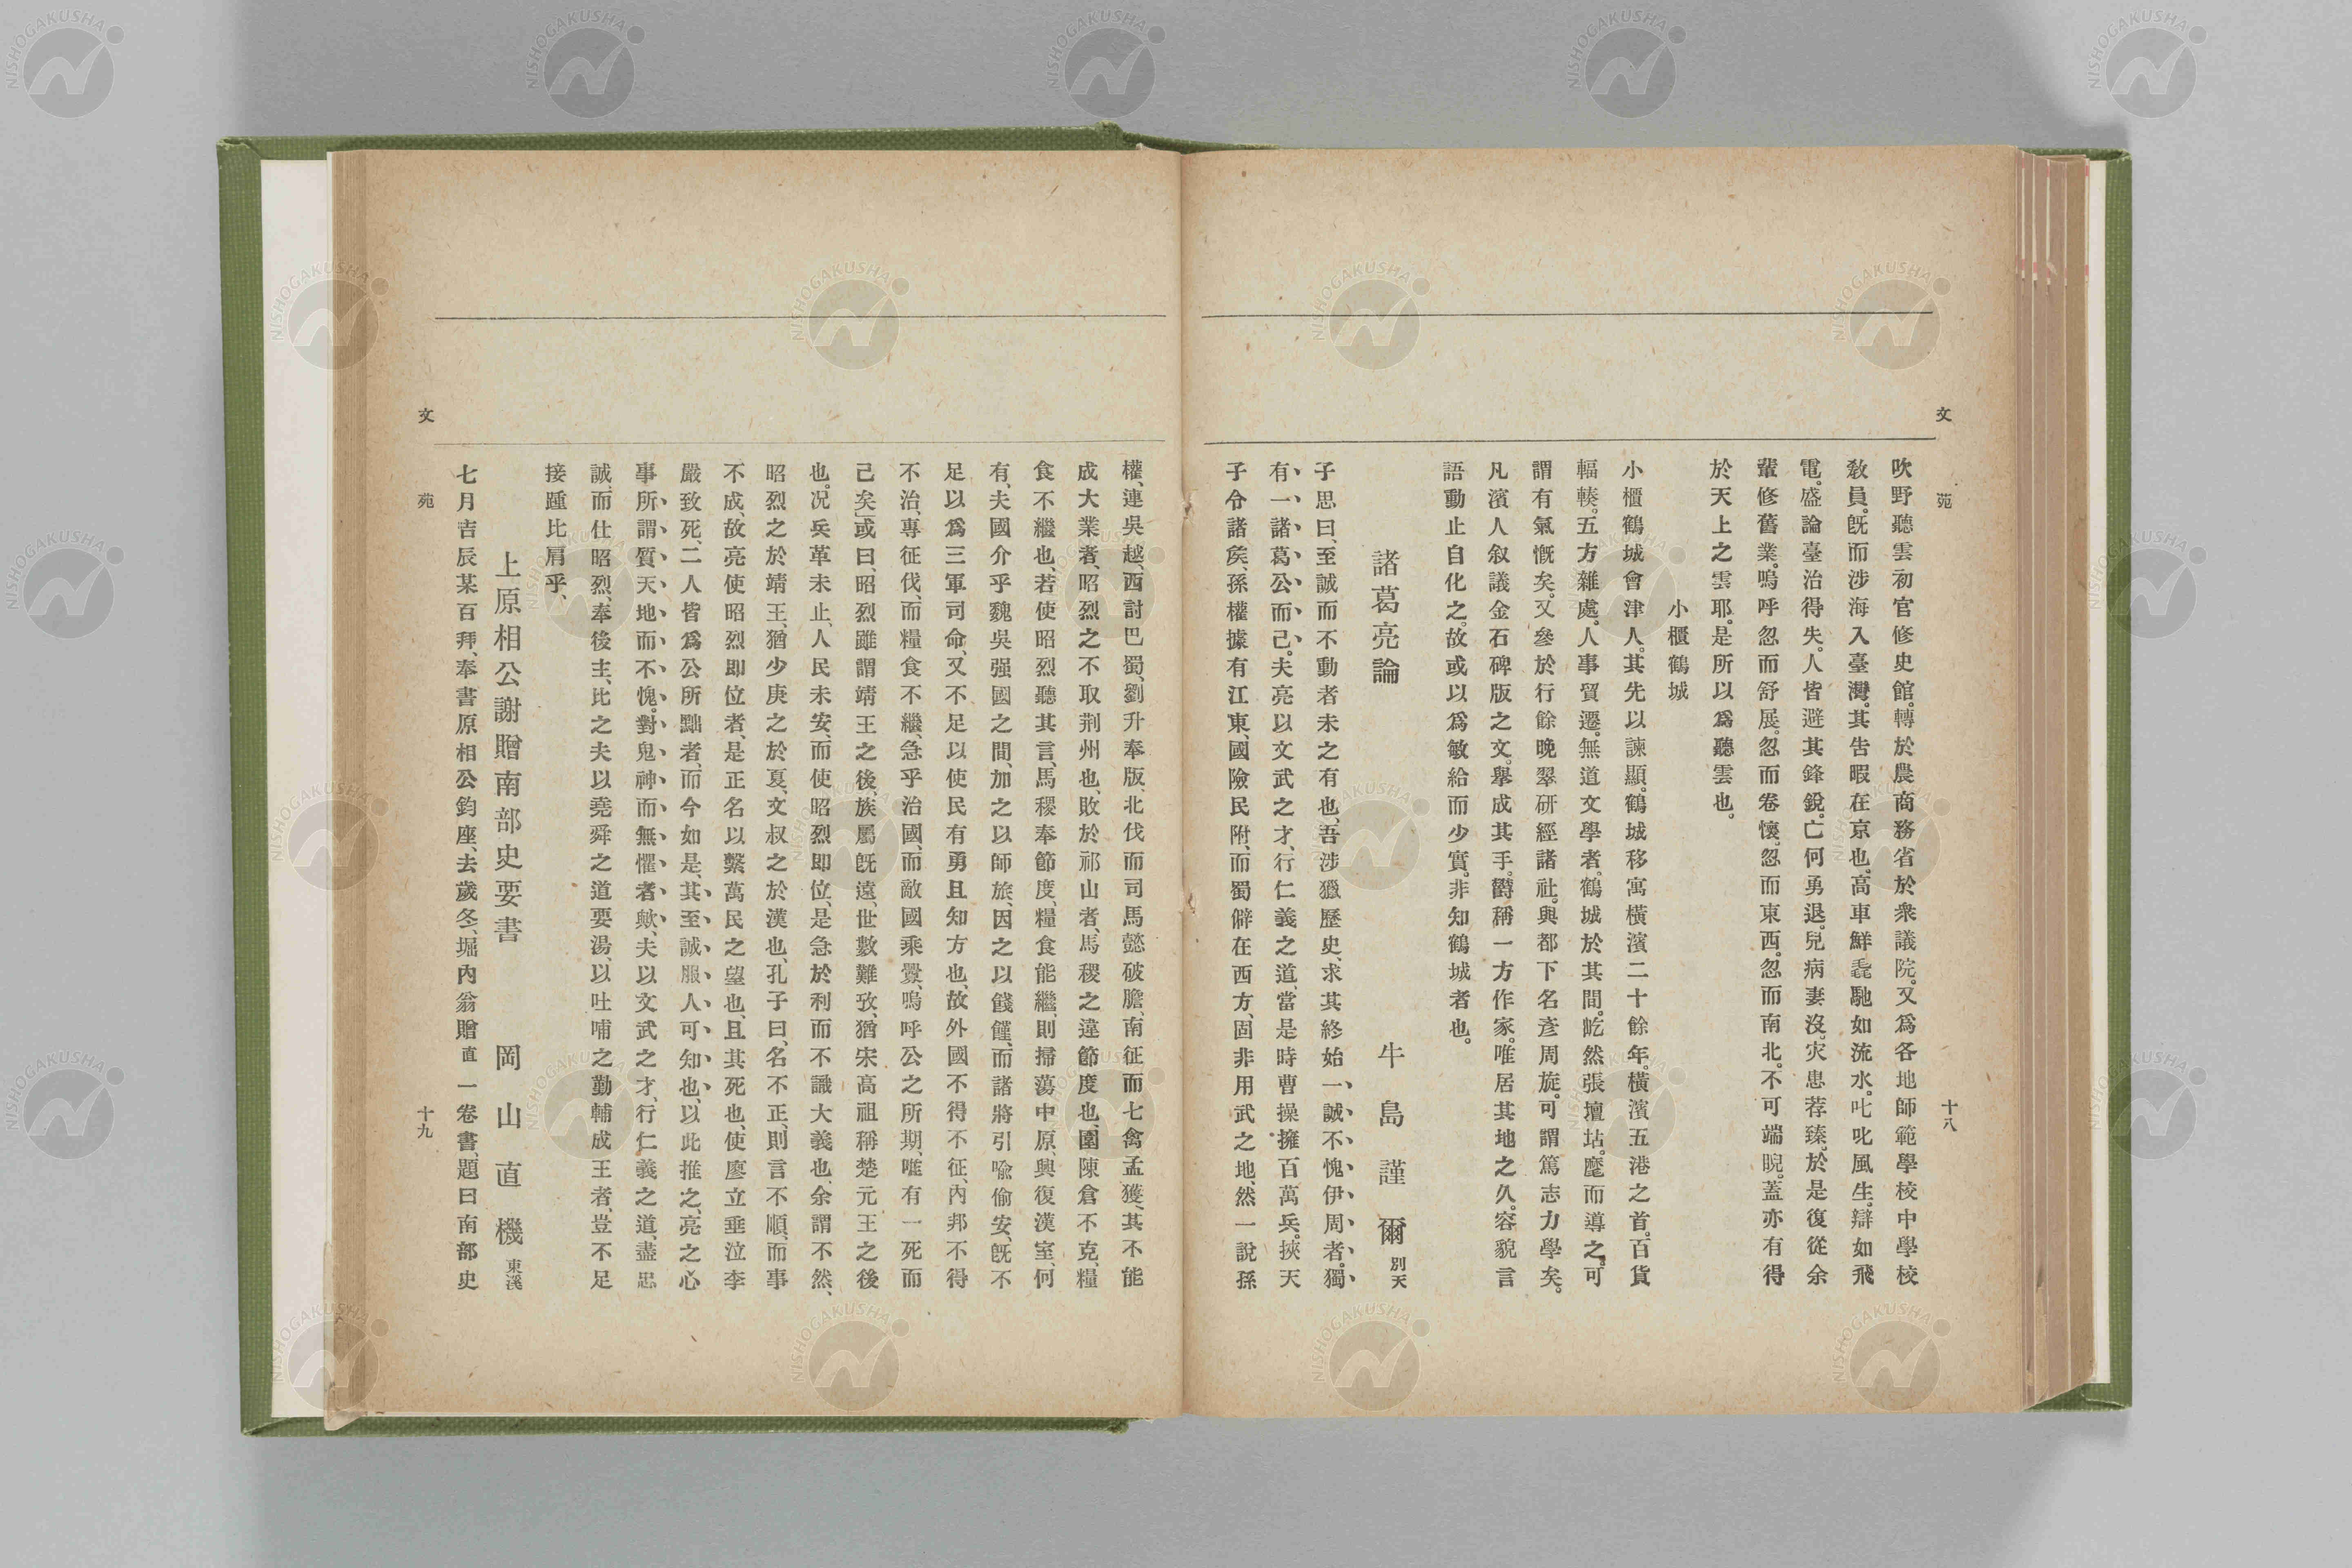 文苑
十八
吹野聽雲初官修史館。轉於農商務省於衆議院。又爲各地師範學校中學校
敎員。旣而涉海入臺灣。其告暇在京也。高車鮮毳馳如流水。叱叱風生。辯如飛
電。盛論臺治得失。人皆避其鋒銳。亡何勇退。兒病妻沒。灾患荐臻。於是復從余
輩修舊業。嗚呼忽而舒展。忽而卷懷。忽而東西。忽而南北。不可端睨。蓋亦有得
於天上之雲耶。是所以爲聽雲也。
小櫃鶴城
小櫃鶴城會津人。其先以諫顯。鶴城移寓橫濱二十餘年。橫濱五港之首。百貨
輻輳。五方雜處。人事貿遷。無道文學者。鶴城於其間。屹然張壇坫。麾而導之。可
謂有氣慨矣。又參於行餘晚翠硏經諸社。與都下名彥周旋。可謂篤志力學矣。
凡濱人叙議金石碑版之文。舉成其手。欝稱一方作家。唯居其地之久。容貌言
語動止自化之。故或以爲敏給而少實。非知鶴城者也。
諸葛亮論
牛島謹爾 別天
子思曰、至誠而不動者未之有也、吾涉獵歷史、求其終始一誠不愧伊周者。獨
有一諸葛公而已。夫亮以文武之才、行仁義之道、當是時曹操擁百萬兵。挾天
子令諸矦、孫權據有江東、國險民附、而蜀僻在西方、固非用武之地、然一說孫
權、連吳越、西討巴蜀、劉升奉版、北伐而司馬懿破膽、南征而七禽孟獲、其不能
成大業者、昭烈之不取荆州也、敗於祁山者、馬稷之違節度也、圍陳倉不克、糧
食不繼也、若使昭烈聽其言、馬稷奉節度、糧食能繼、則掃蕩中原、興復漢室、何
有、夫國介乎魏吳强國之間、加之以師旅、因之以饑饉、而諸將引喩偷安、旣不
足以爲三軍司命、又不足以使民有勇且知方也、故外國不得不征、內邦不得
不治、專征伐、而糧食不繼、急乎治國、而敵國乘釁、嗚呼公之所期、唯有一死而
己矣」或曰、昭烈雖謂靖王之後、族屬旣遠、世數難攷、猶宋高祖稱楚元王之後
也。况兵革未止、人民未安、而使昭烈卽位、是急於利而不識大義也、余謂不然、
昭烈之於靖王、猶少庚之於夏、文叔之於漢也、孔子曰、名不正、則言不順、而事
不成、故亮使昭烈卽位者、是正名以繫萬民之望也、且其死也、使廖立垂泣李
嚴致死、二人皆爲公所黜者、而今如是、其至誠服人可知也、以此推之、亮之心
事所謂質天地而不愧。對鬼神而無懼者歟、夫以文武之才、行仁義之道、盡忠
誠、而仕昭烈、奉後主、比之夫以堯舜之道要湯、以吐哺之勤輔成王者、豈不足
接踵比肩乎、
上原相公謝贈南部史要書
岡山直機 東溪
七月吉辰某百拜、奉書原相公鈞座、去歲冬、堀內翁贈直一卷書、題曰南部史
文苑
十九